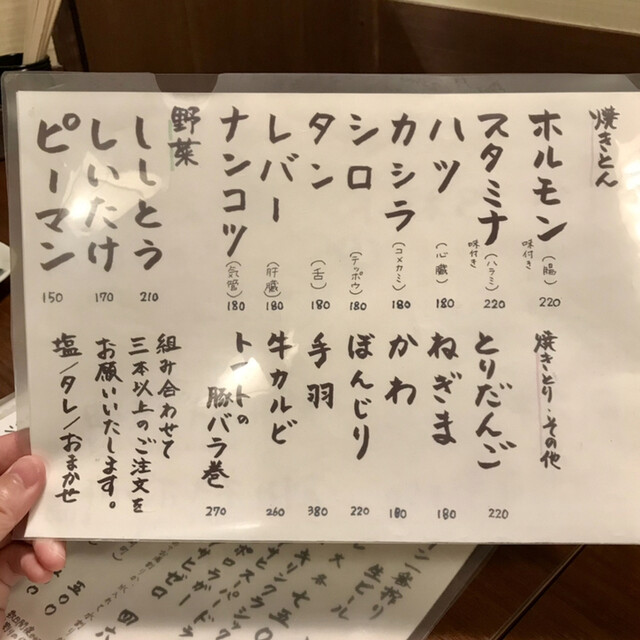 焼きとん
ホルモン(腸)味付き 220
スタミナ(ハラミ)味付き 220
ハツ(心臓) 180
カシラ(コメカミ) 180
シロ(テッポウ) 180
タン(舌) 180
レバー(肝臓) 180
ナンコツ(気管) 180
野菜
ししとう 210
しいたけ 170
ピーマン 150
焼きとり・その他
とりだんご 220
ねぎま 180
かわ 180
ぼんじり 220
手羽 380
牛カルビ 260
トマトの
豚バラ巻 270
組み合わせて
三本以上のご注文を
お願いいたします。
塩/タレ/おまかせ
生ビール